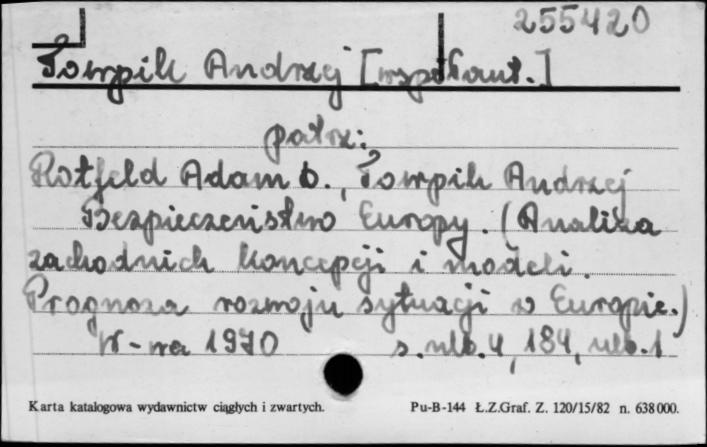 255420
Towpik Andrzej [współaut.]
patrz:
Rotfeld Adam D., Towpik Andrzej
Bezpieczeństwo Europy. (Analiza
zachodnich koncepcji i modeli.
Prognoza rozwoju sytuacji w Europie.)
W-wa 1970 s. nlb. 4, 184, nlb. 1
Karta katalogowa wydawnictw ciągłych i zwartych. Pu-B-144 Ł.Z.Graf. Z. 120/15/82 n. 638000.